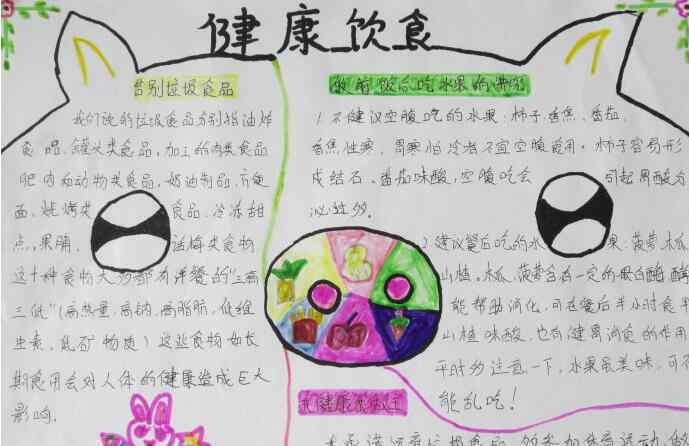 健康饮食
告别垃圾食品
饭前饭后吃水果的讲究
我们说的垃圾食品分别指油炸
食品、罐头类食品，加工的肉类食品
肥肉和动物类食品，奶油制品，方便
面，烧烤类食品，冷冻甜
点，果脯、话梅类食物
这十种食物大多都有洋餐的"三高
三低"(高热量、高钠、高脂肪、低维
生素、低矿物质）这些食物如长
期食用会对人体的健康造成巨大
影响.
1.不建议空腹吃的水果：柿子、香蕉、番茄.
香蕉性寒，胃寒怕冷者不宜空腹食用。柿子容易形
成结石、番茄味酸，空腹吃会引起胃酸分
泌过多.
2.建议餐后吃的水果：菠萝、木瓜、
山楂。木瓜、菠萝含有一定的蛋白酶，
能帮助消化，可在餐后半小时食
山楂味酸，也有健胃消食的作用
平时多注意一下，水果虽美味，可不
能乱吃！